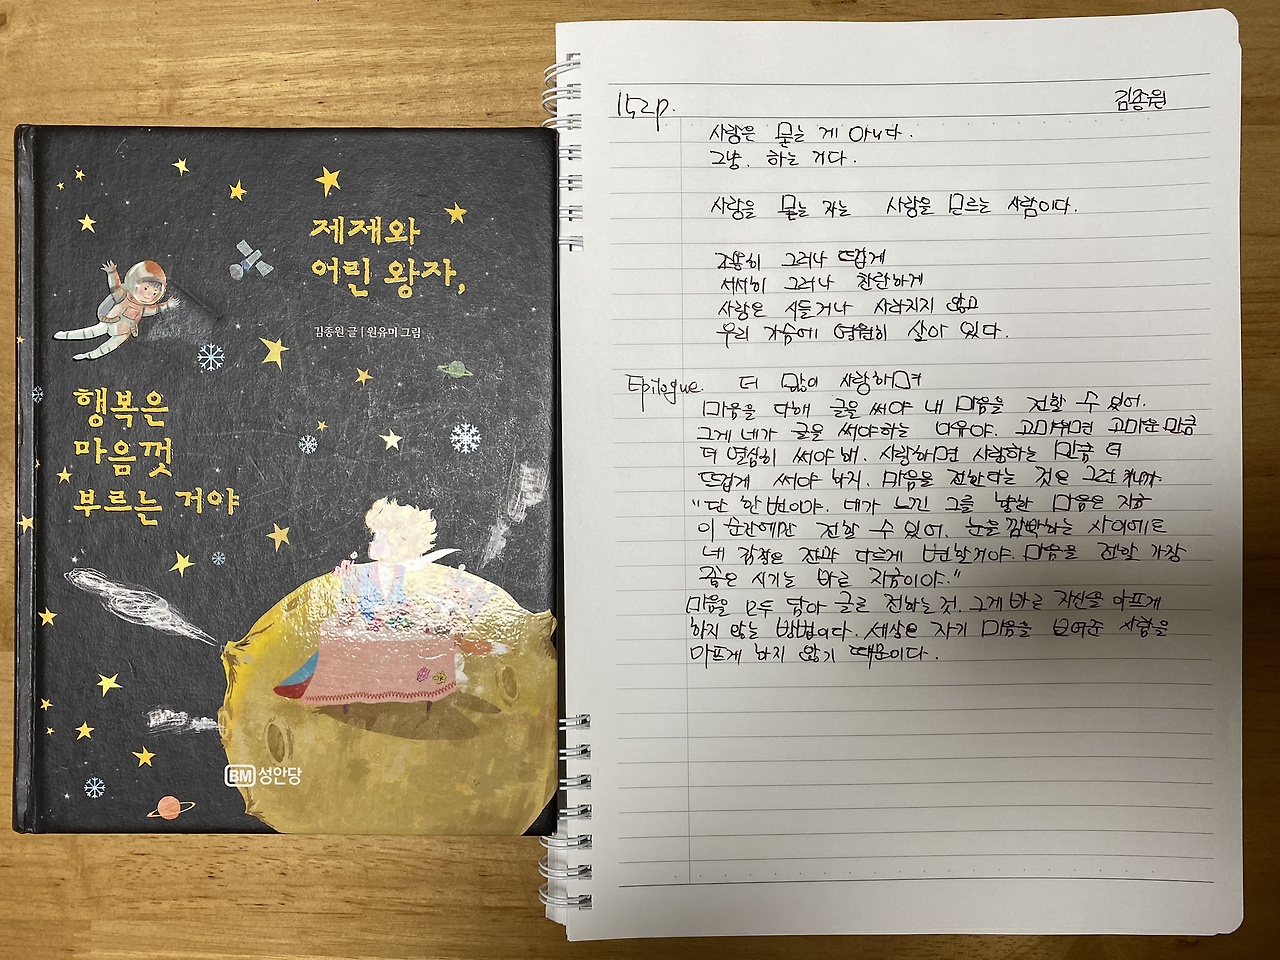 제제와
어린 왕자,
김종원 글 | 원유미 그림
행복은
마음껏
부르는 거야
BM 성안당
152p.
김종원
사랑은 묻는 게 아니다.
그냥. 하는 거다.
사랑을 묻는 자는 사랑을 모르는 사람이다.
조용히 그러나 뜨겁게
서서히 그러나 찬란하게
사랑은 시들거나 사라지지 않고
우리 가슴에 영원히 살아 있다.
Epilogue. 더 많이 사랑하며
마음을 다해 글을 써야 내 마음을 전할 수 있어.
그게 네가 글을 써야하는 이유야. 고마우면 고마운 만큼
더 열심히 써야 해. 사랑하면 사랑하는 만큼 더
뜨겁게 써야 하지. 마음을 전한다는 것은 그런 거니까.
"단 한 번이야. 네가 느낀 그를 향한 마음은 지금
이 순간에만 전할 수 있어. 눈을 깜빡하는 사이에도
네 감정은 전과 다르게 변할거야. 마음을 전할 가장
좋은 시기는 바로 지금이야."
마음을 모두 담아 글로 전하는 것. 그게 바로 자신을 아프게
하지 않는 방법이다. 세상은 자기 마음을 보여준 사람을
아프게 하지 않기 때문이다.